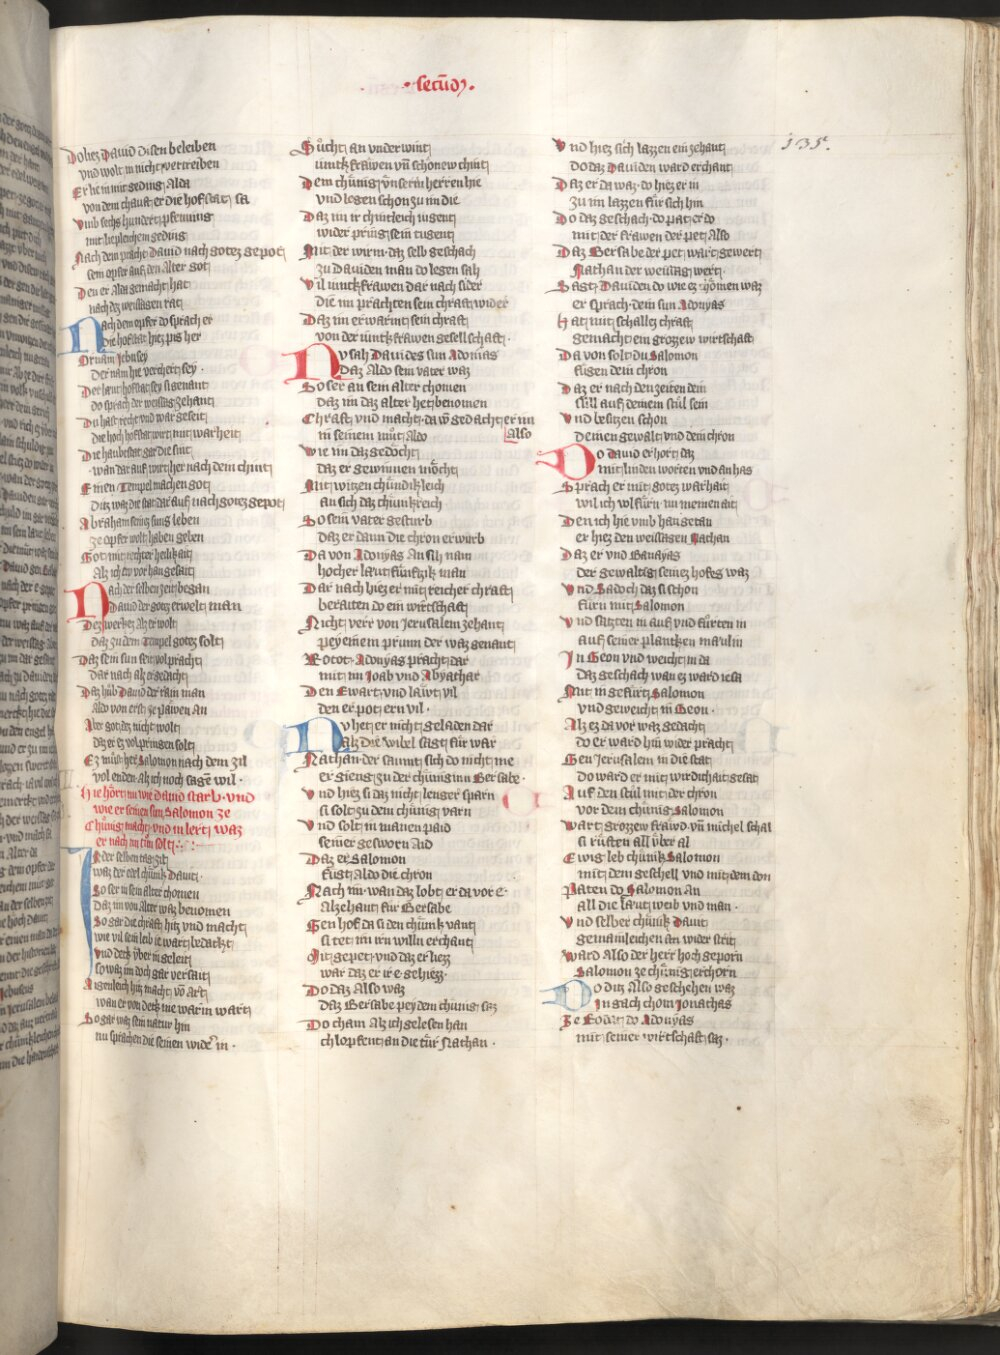 · secūd9 ·
135.
Do hiez Dauid disen beleiben
vnd wolt in nicht vertreiben
Er hem mit geding Alda
von dem chauft er die hofstat sa
Vmb sechs hundert pfenning
mit liepleichem geding
Nach dem pracht Dauid nach gotez gepot
sein opfer auf den Alter got
Den er Alda gemacht hat
nach dez weissagen rat
Nach dem opfer do sprach er
Die hofstat hiez pis her
Der nam hie verchert sey ·
do sprach der weissag zehant
Du hast recht vnd war geseit
Die hoch hofstat wirt mit warheit
wan dar auf wirt her nach dem chint
Einen Tempel machen got
Ditz waz die stat dar auf nach gotez gepot
Abraham seinez suns leben
ze opfer wolt haben geben
Got mit rechter heilikait
Alz ich ew vor han gesait
Nach der selben zeit began
Dauid der gotz erwelt man
Dez werkez Alz er wolt
daz zu dem Tempel gotez solt
Daz sein sun seit volpracht
dar nach alz er gedacht
Daz hub Dauid der rain man
Aldo von erst ze pawen an
Aber got dez nicht wolt
daz er ez volpringen solt
Ez must her Salomon nach dem zil
vol enden Alz ich noch sagē wil ·
Hie hort nu wie dauid starb · vnd
wie er seinen sun Salomon ze
Chunig macht vnd in lert waz
er nach im tun solt
In der selben tag zit
waz der edel chunk Dauit ·
So ser in sein alter chomen
Daz im von Alter waz benomen
So gar die chraft hitz vnd macht
wie vil sein leib ie wart bedackt
Vnd deck vber in geleit
so waz im doch gar versait
Augenleich hitz macht vō Art
wan er von deck nie warm wart
So gar waz sein natur hin
nu sprachen die seinen wider in ·
Sucht an vnder wint
iunkfrawen vn̄ schonew chint
Dem chunig vnserm herren hie
vnd legen schon zu im die
Daz im ir chintleich tugent
wider pring sein iugent
Mit der wirm · daz selb geschach
zu Dauiden man do legen sah
Vil iunckfrawen dar nach sider
die im prachten sein chraft wider
Daz im erwarmt sein chraft
von der iunkfrawen gesellschaft ·
Nv sah Dauides sun Adonias
Daz Aldo sein vater waz
So ser an sein alter chomen
daz im daz alter het benomen
Chraft vnd macht · da w̄ gedacht er im
in seinem mut Aldo
Also
wie im daz gedocht
daz er gewinnen mocht
Mit witzen chundikleich
an sich daz chunkreich
So sein vater gesturb
daz er dann die chron erwurb
Da von Adonyas An sih nam
hocher laut funfzik man
Dar nach hiez er mit reicher chraft
beraiten do ein wirtschaft
Nicht verr von Jerusalem zehant
pey einem prunn der waz genant
Rotot · Adonyas pracht dar
mit im Joab vnd Abyathar
Den Ewart · vnd laut vil
den er pot ern vil ·
Nv het er nicht geladen dar
alz die wibel sagt fur war
Nathan der saumt sich do nicht me
er gieng zu der chunginn Bersabe ·
Vnd hiez si daz nicht lenger sparn
si solt zu dem chunig varn
Vnd solt in manen paid
seiner gesworn Aid
Daz er Salomon
fugt Aldo die chron
Nach im · wan daz lobt er da vor e ·
Alzehant fur Bersabe
Gen hof da si den chunk vant
si tet im irn willn erchant
Mit gepet · vnd daz er liez
war daz er ir e gehiez ·
Do daz Also waz
daz Bersabe pey dem chunig saz
Do cham Alz ich gelesen han
chlopfent an die tur Nathan ·
Vnd hiez sich lazzen ein zehant
do daz Dauiden ward erchant
Daz er da waz · do hiez er in
zu im lazzen fur sich hin
Do daz geschach · do pat er do
mit der frawen der pet Also
Daz Bersabe der pet wart gewert
Nathan der weissag wert ·
Sagt Dauiden do wie ez chomen waz
er sprach · dein sun Adonyas
Hat mit schallez chraft
gemacht ein grozzew wirtschaft
Da von solt du Salomon
fugen dein chron
Daz er nach den zeiten dein
sull auf deinem stul sein
Vnd besitzen schon
Deinen gewalt vnd dein chron
Do Dauid erhort daz
mit linden worten vnd an has
Sprach er mit gotez warhait
wil ich volfurn mein ait
Den ich hie vmb han getan
er hiez den weissagen Nathan
Daz er vnd Banayas
der gewaltig seinez hofes waz
Vnd Sadoch daz si schon
furn mit Salomon
Vnd satzten in auf vnd furten in
auf seiner planken maulin
In Geon vnd weicht in da
daz geschach wan ez ward iesa
Mit in gefurt Salomon
vnd geweicht in Geon ·
Alz ez da vor waz gedacht
do er ward hin wider pracht
Gen Jerusalem in die stat
do ward er mit wirdichait gesat
Auf den stul mit der chron
vor dem chunig Salomon
Wart grozzew frawd · vn̄ michel schal
si rufften all vber al
Ewig leb chunk Salomon
mit dem geschell vnd mit dem don
Paten do Salomon An
all die laut weib vnd man ·
Vnd selber chunk Dauit
gemainleichen an wider strit
Ward Also der herr hoch geporn
Salomon ze chunig erchorn
Do ditz Also geschehen waz
In gach chom Jonathas
Ze Rodat do Adonyas
mit seiner wirtschaft saz ·